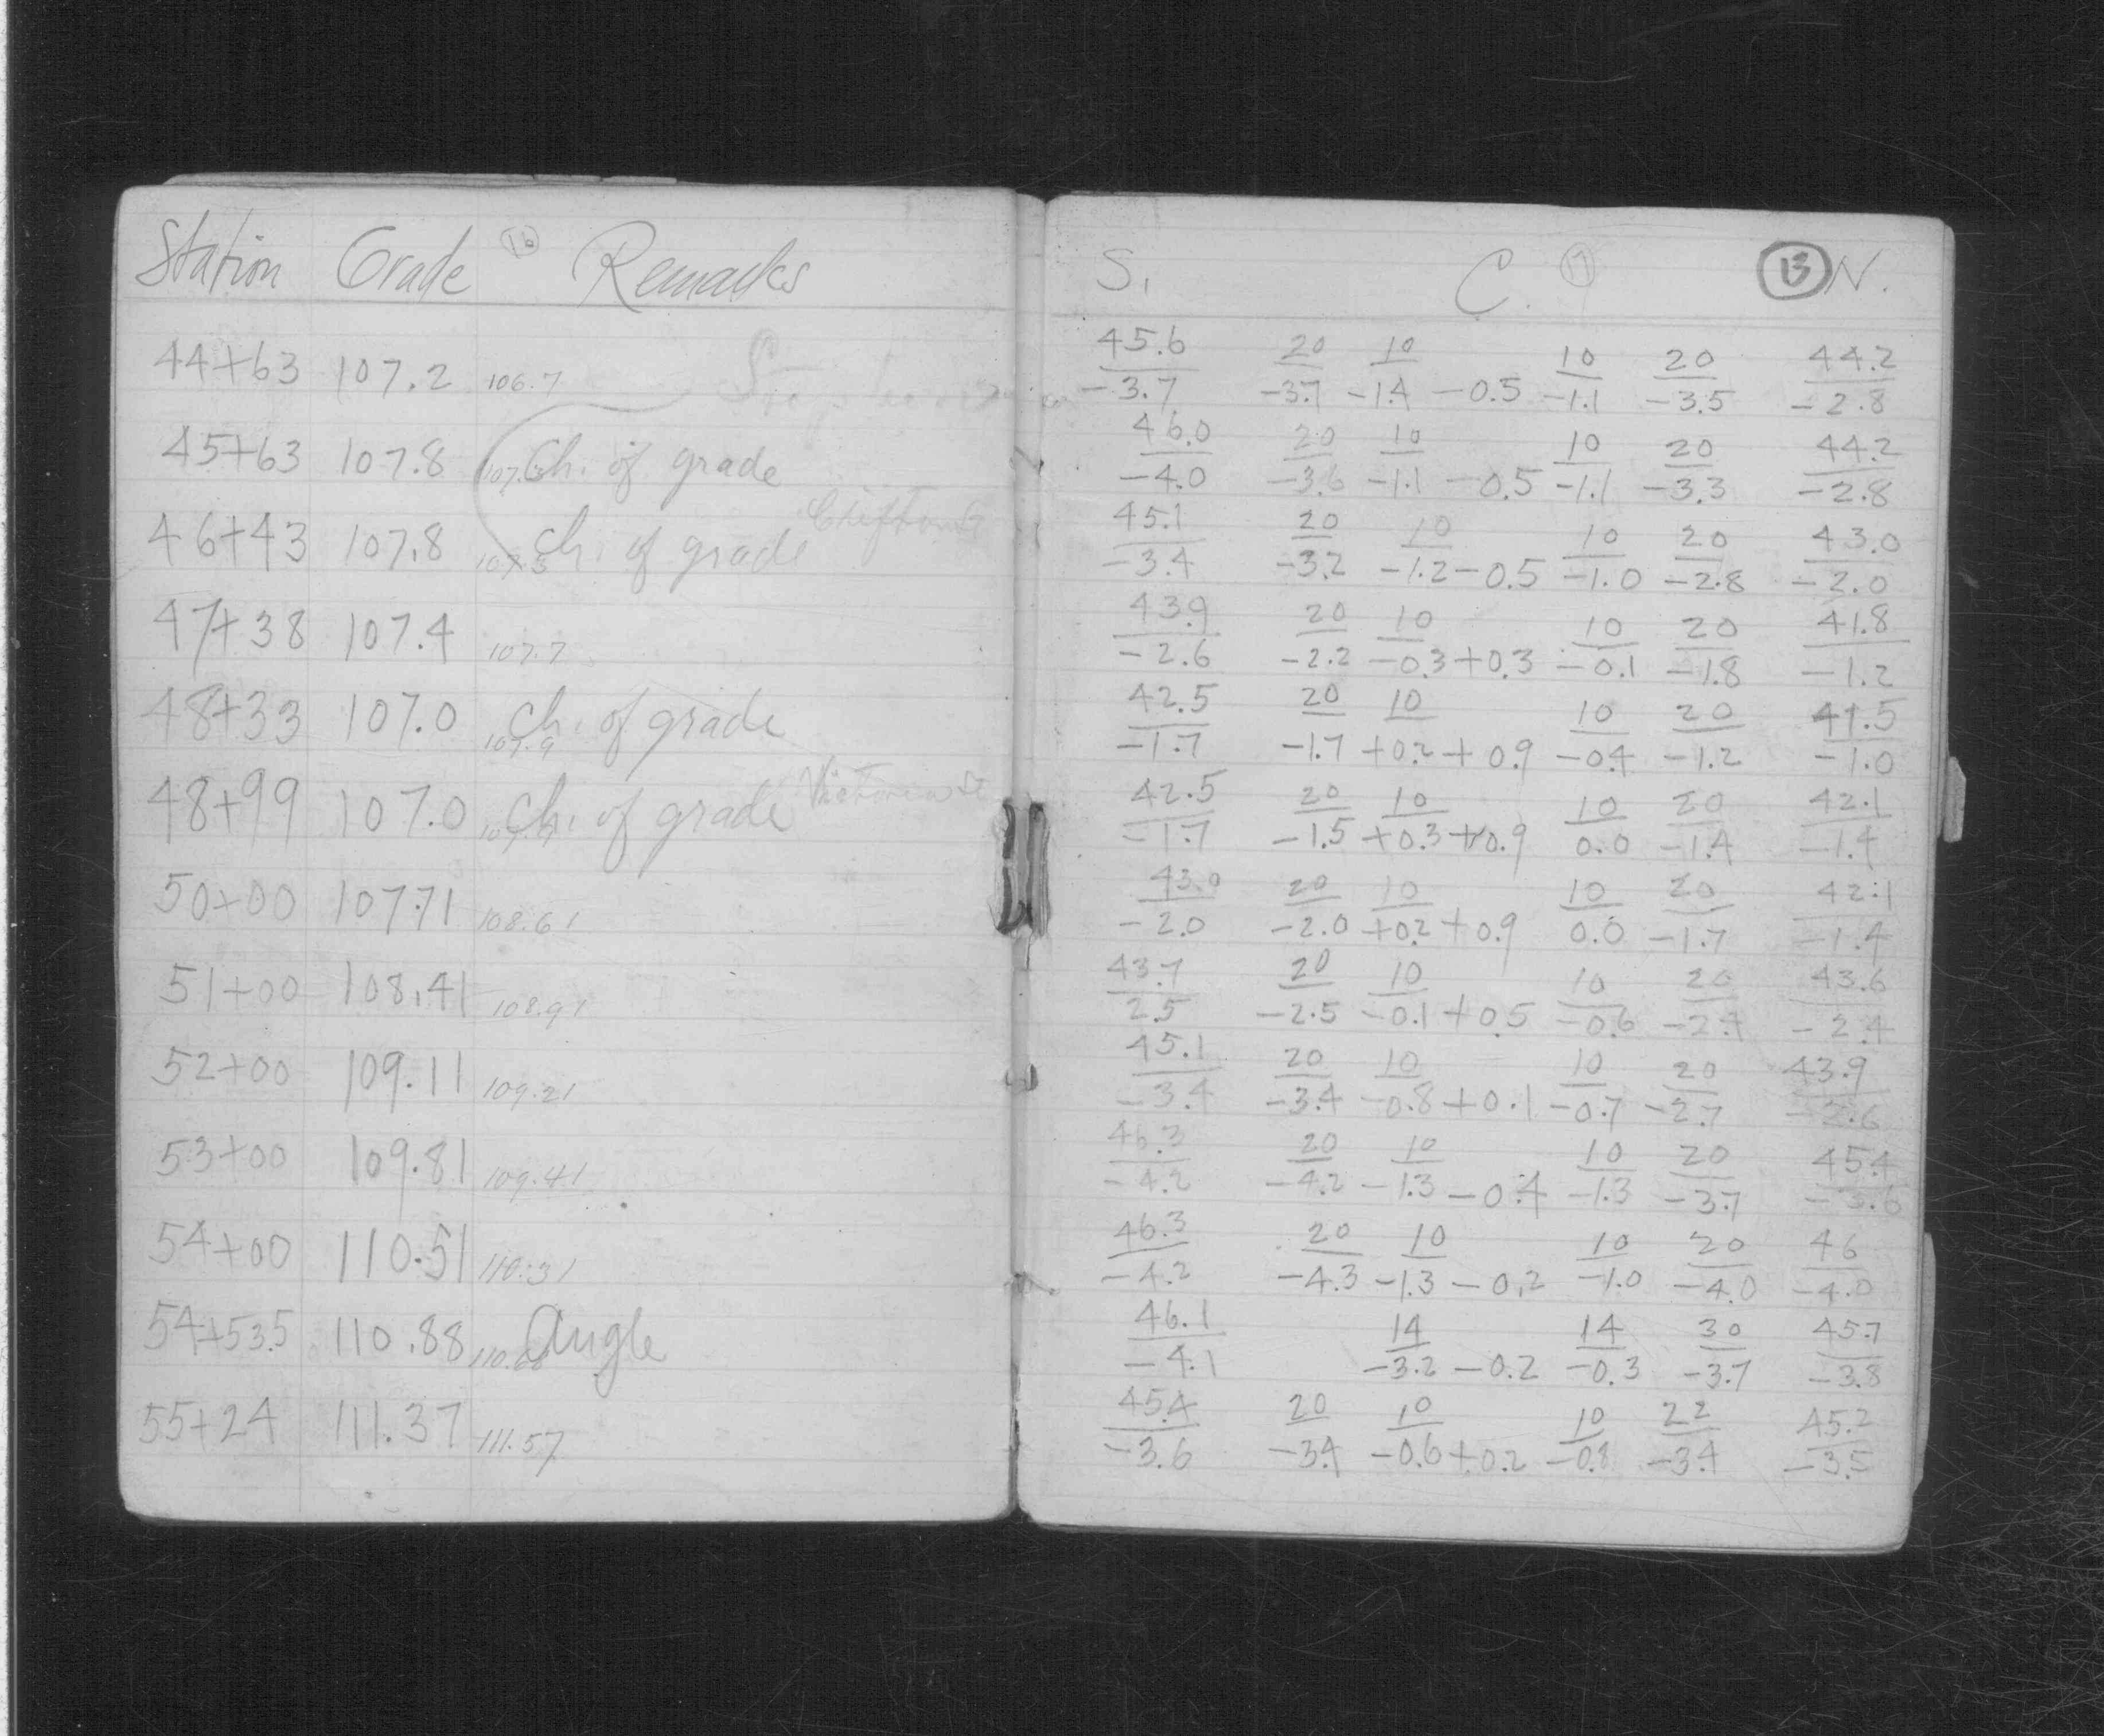 Station Grade 16 Remarks
44+63 107.2 106.7
45+63 107.8 Ch. of grade
46+43 107.8 107.3 Ch. of grade Clifton St
47+38 107.4 107.7
48+33 107.0 107.9 Ch. of grade
48+99 107.0 107.9 Ch. of grade Victoria St
50+00 107.71 108.61
51+00 108.41 108.91
52+00 109.11 109.21
53+00 109.81 109.41
54+00 110.51 110.31
54+53.5 110.88 110.68 Angle
55+24 111.37 111.57
S. C. 17 13 N.
45.6 20 10 10 20 44.2
-3.7 -3.7 -1.4 -0.5 -1.1 -3.5 -2.8
46.0 20 10 10 20 44.2
-4.0 -3.6 -1.1 -0.5 -1.1 -3.3 -2.8
45.1 20 10 10 20 43.0
-3.4 -3.2 -1.2 -0.5 -1.0 -2.8 -2.0
43.9 20 10 10 20 41.8
-2.6 -2.2 -0.3 +0.3 -0.1 -1.8 -1.2
42.5 20 10 10 20 41.5
-1.7 -1.7 +0.2 +0.9 -0.4 -1.2 -1.0
42.5 20 10 10 20 42.1
-1.7 -1.5 +0.3 +0.9 0.0 -1.4 -1.4
43.0 20 10 10 20 42.1
-2.0 -2.0 +0.2 +0.9 0.0 -1.7 -1.4
43.7 20 10 10 20 43.6
2.5 -2.5 -0.1 +0.5 -0.6 -2.4 -2.4
45.1 20 10 10 20 43.9
-3.4 -3.4 -0.8 +0.1 -0.7 -2.7 -2.6
46.3 20 10 10 20 45.4
-4.2 -4.2 -1.3 -0.4 -1.3 -3.7 -3.6
46.3 20 10 10 20 46
-4.2 -4.3 -1.3 -0.2 -1.0 -4.0 -4.0
46.1 14 14 30 45.7
-4.1 -3.2 -0.2 -0.3 -3.7 -3.8
45.4 20 10 10 22 45.2
-3.6 -3.4 -0.6 +0.2 -0.8 -3.4 -3.5